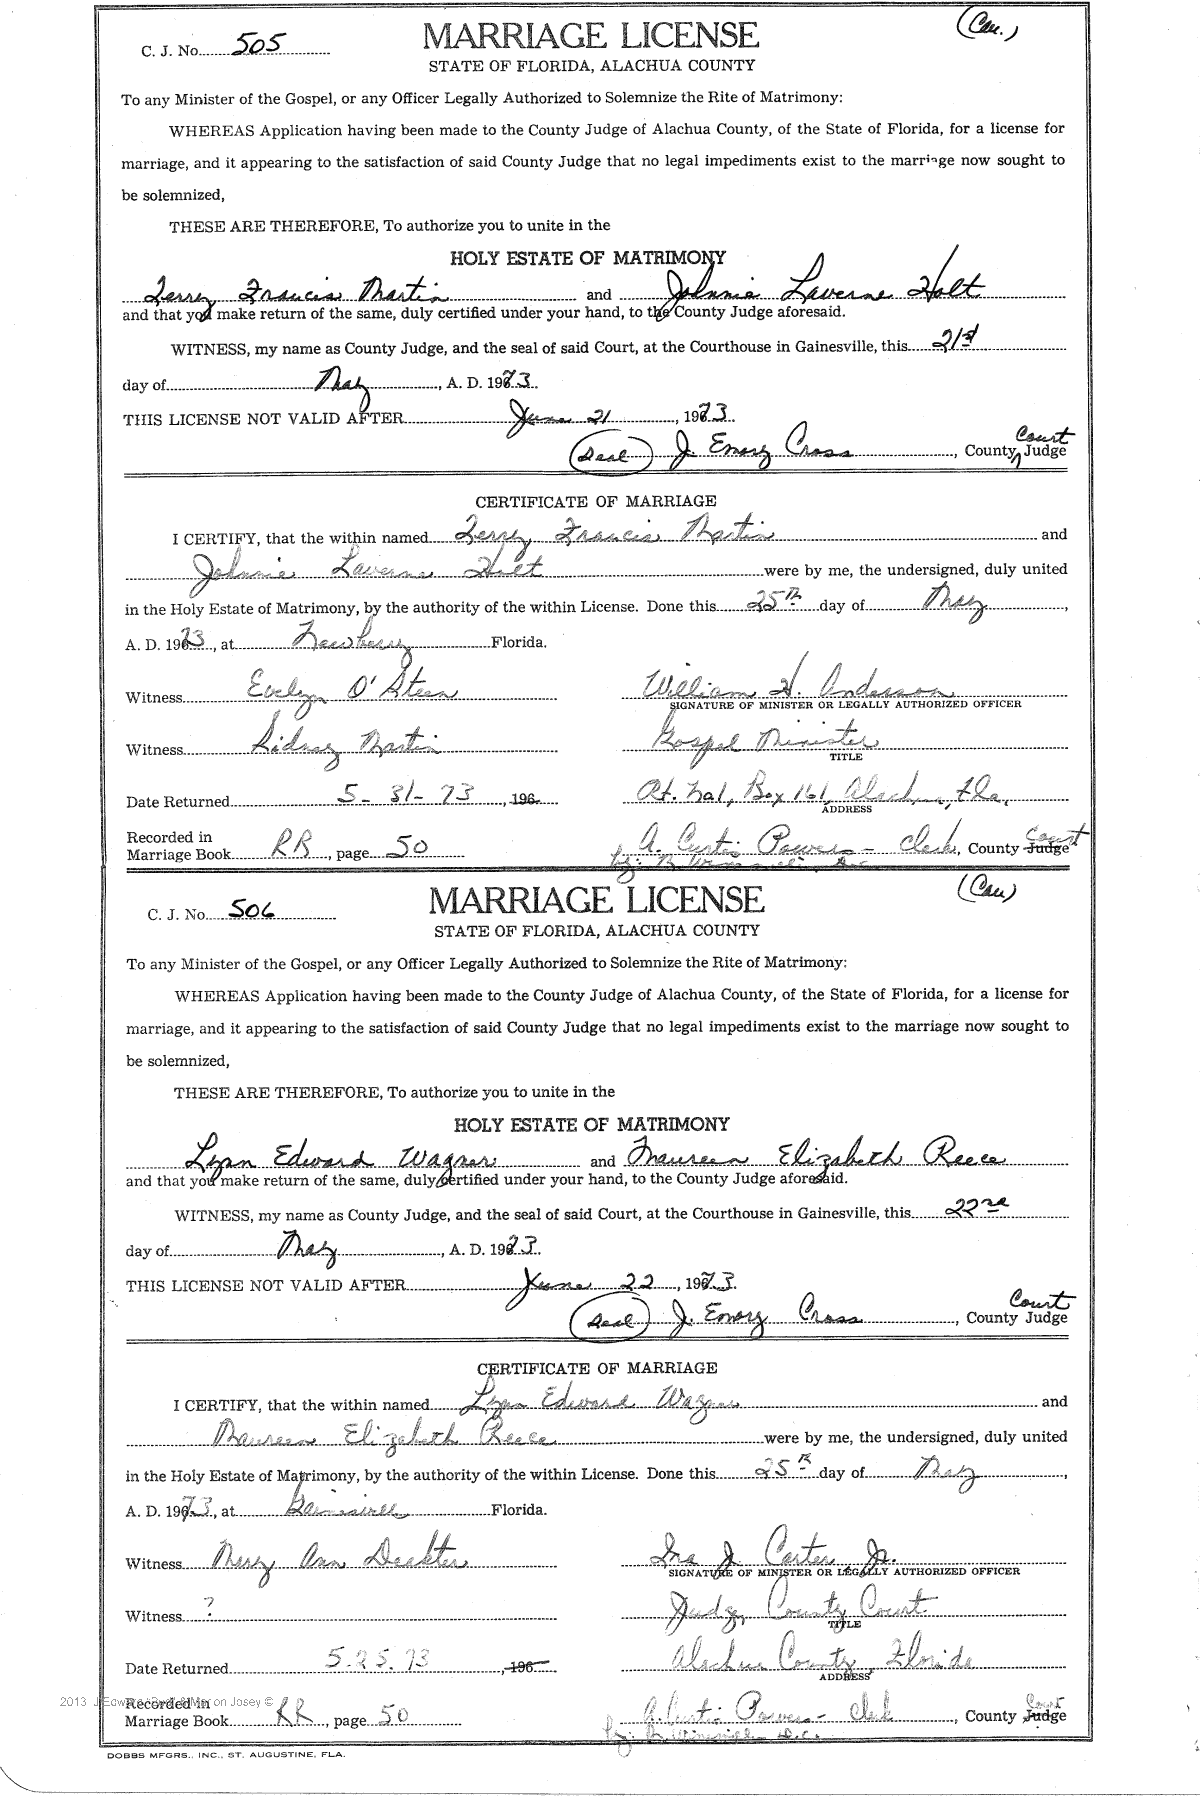 (Cau.)
C. J. No. 505 MARRIAGE LICENSE
STATE OF FLORIDA, ALACHUA COUNTY
To any Minister of the Gospel, or any Officer Legally Authorized to Solemnize the Rite of Matrimony:
WHEREAS Application having been made to the County Judge of Alachua County, of the State of Florida, for a license for
marriage, and it appearing to the satisfaction of said County Judge that no legal impediments exist to the marriage now sought to
be solemnized,
THESE ARE THEREFORE, To authorize you to unite in the
HOLY ESTATE OF MATRIMONY
Terry Francis Martin and Johnnie Laverne Holt
and that you make return of the same, duly certified under your hand, to the County Judge aforesaid.
WITNESS, my name as County Judge, and the seal of said Court, at the Courthouse in Gainesville, this 21st
day of May, A. D. 1973.
THIS LICENSE NOT VALID AFTER June 21, 1973.
(Seal) J. Emory Cross, County Court Judge
CERTIFICATE OF MARRIAGE
I CERTIFY, that the within named Terry Francis Martin and
Johnnie Laverne Holt were by me, the undersigned, duly united
in the Holy Estate of Matrimony, by the authority of the within License. Done this 25th day of May,
A. D. 1973, at Newberry Florida.
Witness Evelyn O'Steen William H. Anderson
SIGNATURE OF MINISTER OR LEGALLY AUTHORIZED OFFICER
Witness Sidney Martin Gospel Minister
TITLE
Date Returned 5-31-73, 196 Rt. No1, Box 161, Alachua, Fla.
ADDRESS
Recorded in
Marriage Book RR, page 50 A. Curtis Powers - Clerk, County Court Judge
by:
C. J. No. 506 MARRIAGE LICENSE (Cau)
STATE OF FLORIDA, ALACHUA COUNTY
To any Minister of the Gospel, or any Officer Legally Authorized to Solemnize the Rite of Matrimony:
WHEREAS Application having been made to the County Judge of Alachua County, of the State of Florida, for a license for
marriage, and it appearing to the satisfaction of said County Judge that no legal impediments exist to the marriage now sought to
be solemnized,
THESE ARE THEREFORE, To authorize you to unite in the
HOLY ESTATE OF MATRIMONY
Lynn Edward Wagner and Maureen Elizabeth Reece
and that you make return of the same, duly certified under your hand, to the County Judge aforesaid.
WITNESS, my name as County Judge, and the seal of said Court, at the Courthouse in Gainesville, this 22nd
day of May, A. D. 1973.
THIS LICENSE NOT VALID AFTER June 22, 1973.
(Seal) J. Emory Cross, County Court Judge
CERTIFICATE OF MARRIAGE
I CERTIFY, that the within named Lynn Edward Wagner and
Maureen Elizabeth Reece were by me, the undersigned, duly united
in the Holy Estate of Matrimony, by the authority of the within License. Done this 25th day of May,
A. D. 1973, at Gainesville Florida.
Witness Mary Ann Deakter Ira J. Carter, Jr.
SIGNATURE OF MINISTER OR LEGALLY AUTHORIZED OFFICER
Witness ? Judge, County Court
TITLE
Date Returned 5.25.73, 196 Alachua County, Florida
ADDRESS
Recorded in
Marriage Book RR, page 50 A. Curtis Powers - Clerk, County Court Judge
by: D.C.
DOBBS MFGRS., INC., ST. AUGUSTINE, FLA.